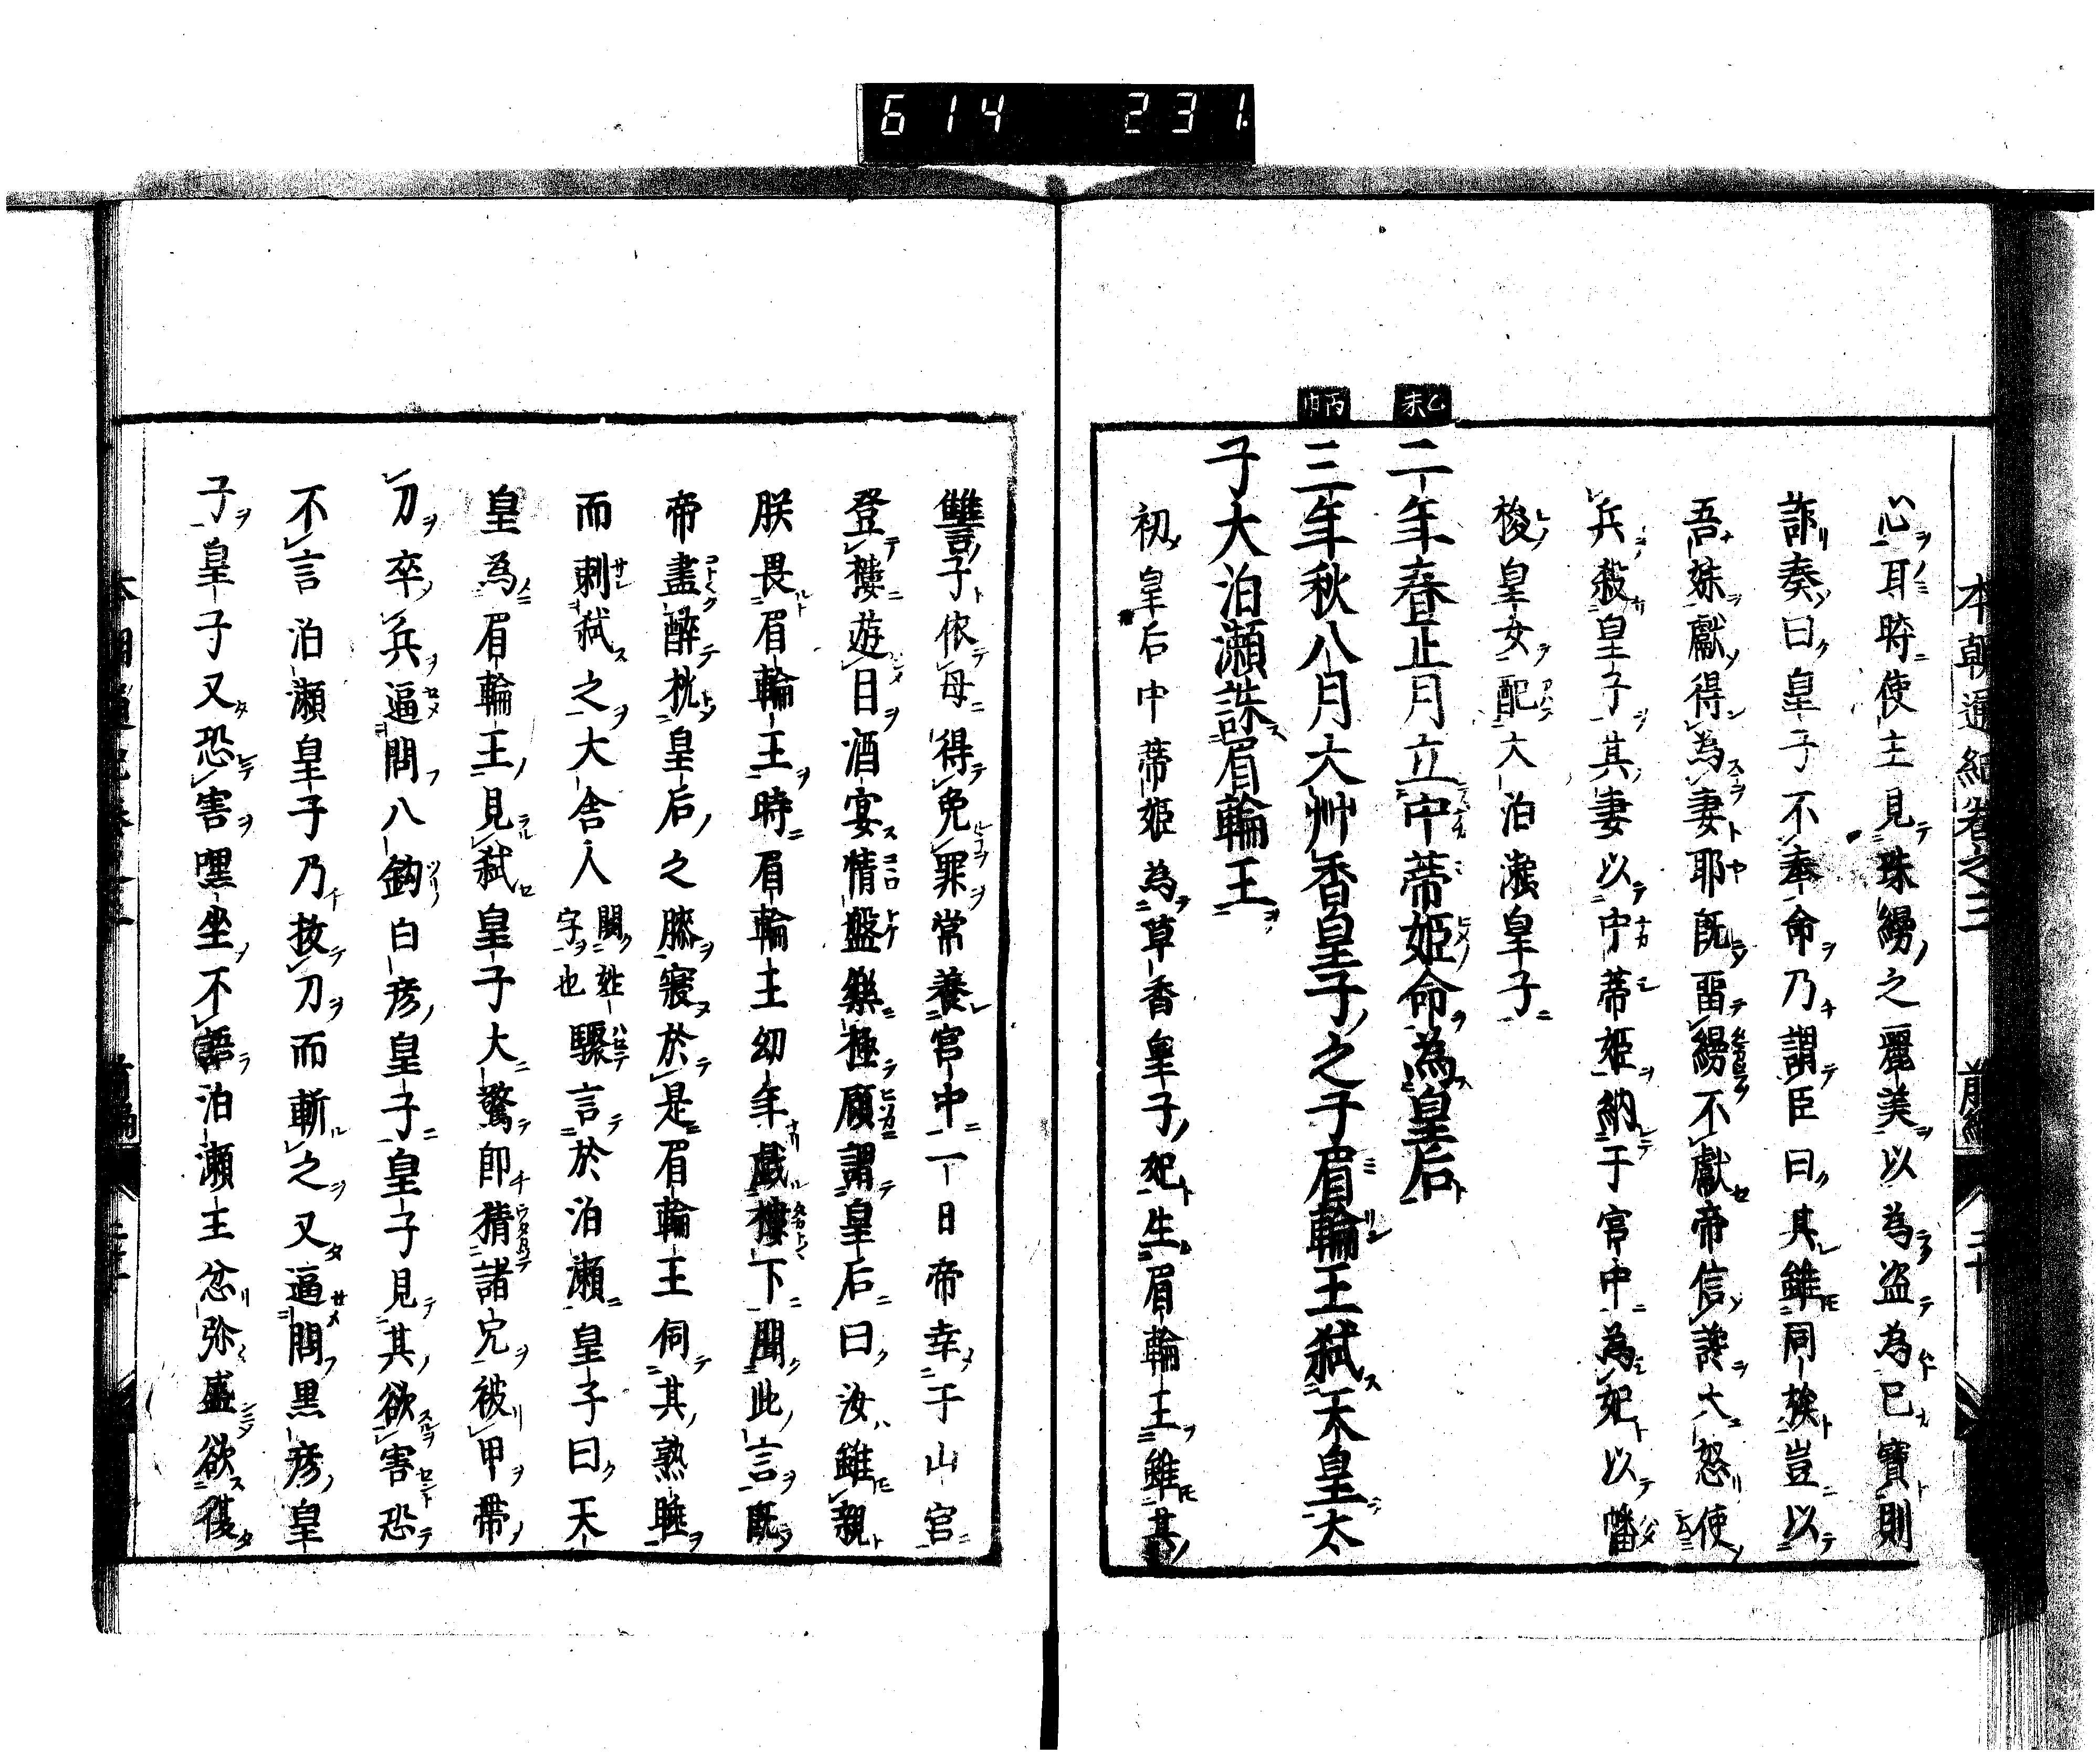 6 14 231.
本朝通紀卷之三 前編 二十
心耳時使主見珠縵之麗美以為盗為己寶則
詐奏曰皇子不奉命乃謂臣曰其雖同族豈以
吾妹獻得為妻耶既畱縵不獻帝信讒大怒使
兵殺皇子其妻以中蒂姬納于宮中為妃以幡
梭皇女配大泊瀬皇子
乙未
二年春正月立中蒂姬命為皇后
丙申
三年秋八月大艸香皇子之子眉輪王弑天皇太
子大泊瀬誅眉輪王
初皇后中蒂姬為草香皇子妃生眉輪王雖其
讐子依母得免罪常養宮中一日帝幸于山宮
登樓遊目酒宴情盤樂極顧謂皇后曰汝雖親
朕畏眉輪王時眉輪王幼年戲樓下聞此言既
帝盡醉枕皇后之膝寢於是眉輪王伺其熟睡
而刺弑之大舎人闕姓字也驟言於泊瀬皇子曰天
皇為眉輪王見弑皇子大驚即猜諸兄被甲帶
刀卒兵逼問八鈎白彦皇子皇子見其欲害恐
不言泊瀬皇子乃拔刀而斬之又逼問黒彦皇
子皇子又恐害嘿坐不語泊瀬王忿弥盛欲復